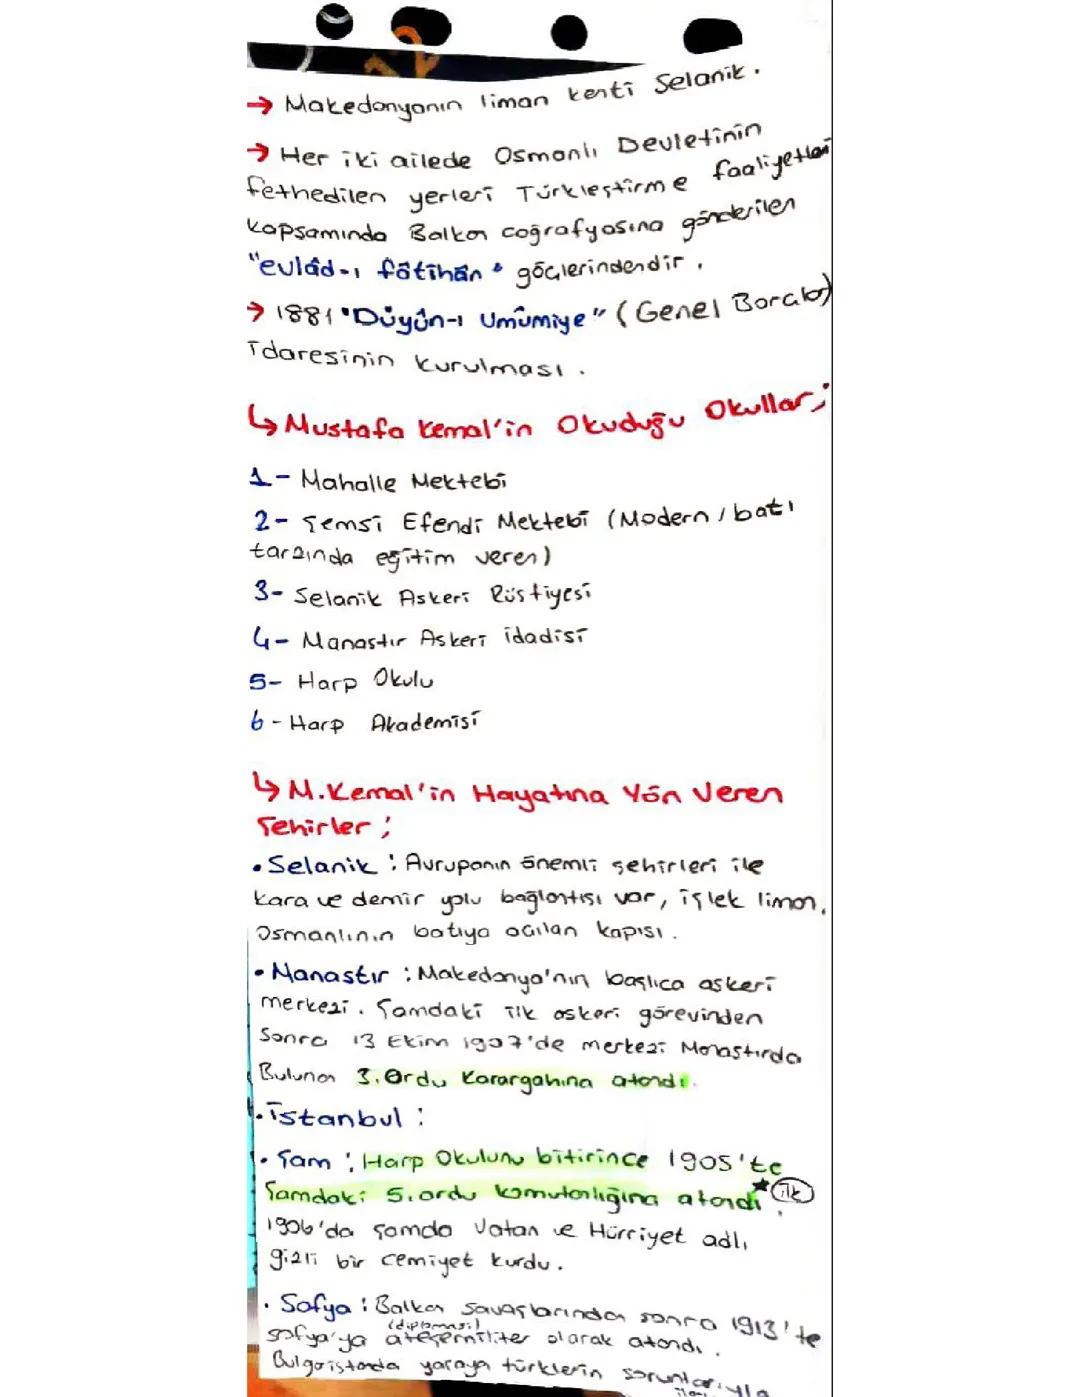 → Makedonyanın liman kenti Selanik.
→ Her iki ailede Osmanlı Devletinin
fethedilen yerleri Türkleştirme faaliyetleri
kapsamında Balkan coğrafyasına gönderilen
"evlâd-ı fâtihân" göçlerindendir.
→ 1881 "Düyûn-ı Umûmiye" (Genel Borçlar)
İdaresinin kurulması.
↳ Mustafa Kemal'in Okuduğu Okullar;
1- Mahalle Mektebi
2- Şemsi Efendi Mektebi (Modern / batı
tarzında eğitim veren)
3- Selanik Askeri Rüştiyesi
4- Manastır Askeri idadisi
5- Harp Okulu
6- Harp Akademisi
↳ M.Kemal'in Hayatına Yön Veren
Şehirler;
• Selanik : Avrupanın önemli şehirleri ile
kara ve demir yolu bağlantısı var, işlek liman,
Osmanlının batıya açılan kapısı.
• Manastır : Makedonya'nın başlıca askeri
merkezi. Şamdaki ilk askeri görevinden
Sonra 13 Ekim 1907'de merkezi Manastırda
Bulunan 3.Ordu Karargahına atandı.
• İstanbul :
• Şam : Harp Okulunu bitirince 1905'te
Şamdaki 5.ordu komutanlığına atandı. ★ ilk
1906'da şamda Vatan ve Hürriyet adlı
gizli bir cemiyet kurdu.
• Sofya : Balkan savaşlarından sonra 1913'te
(diplomasi)
sofya'ya ateşemiliter olarak atandı.
Bulgaristanda yaşayan türklerin sorunlarıyla